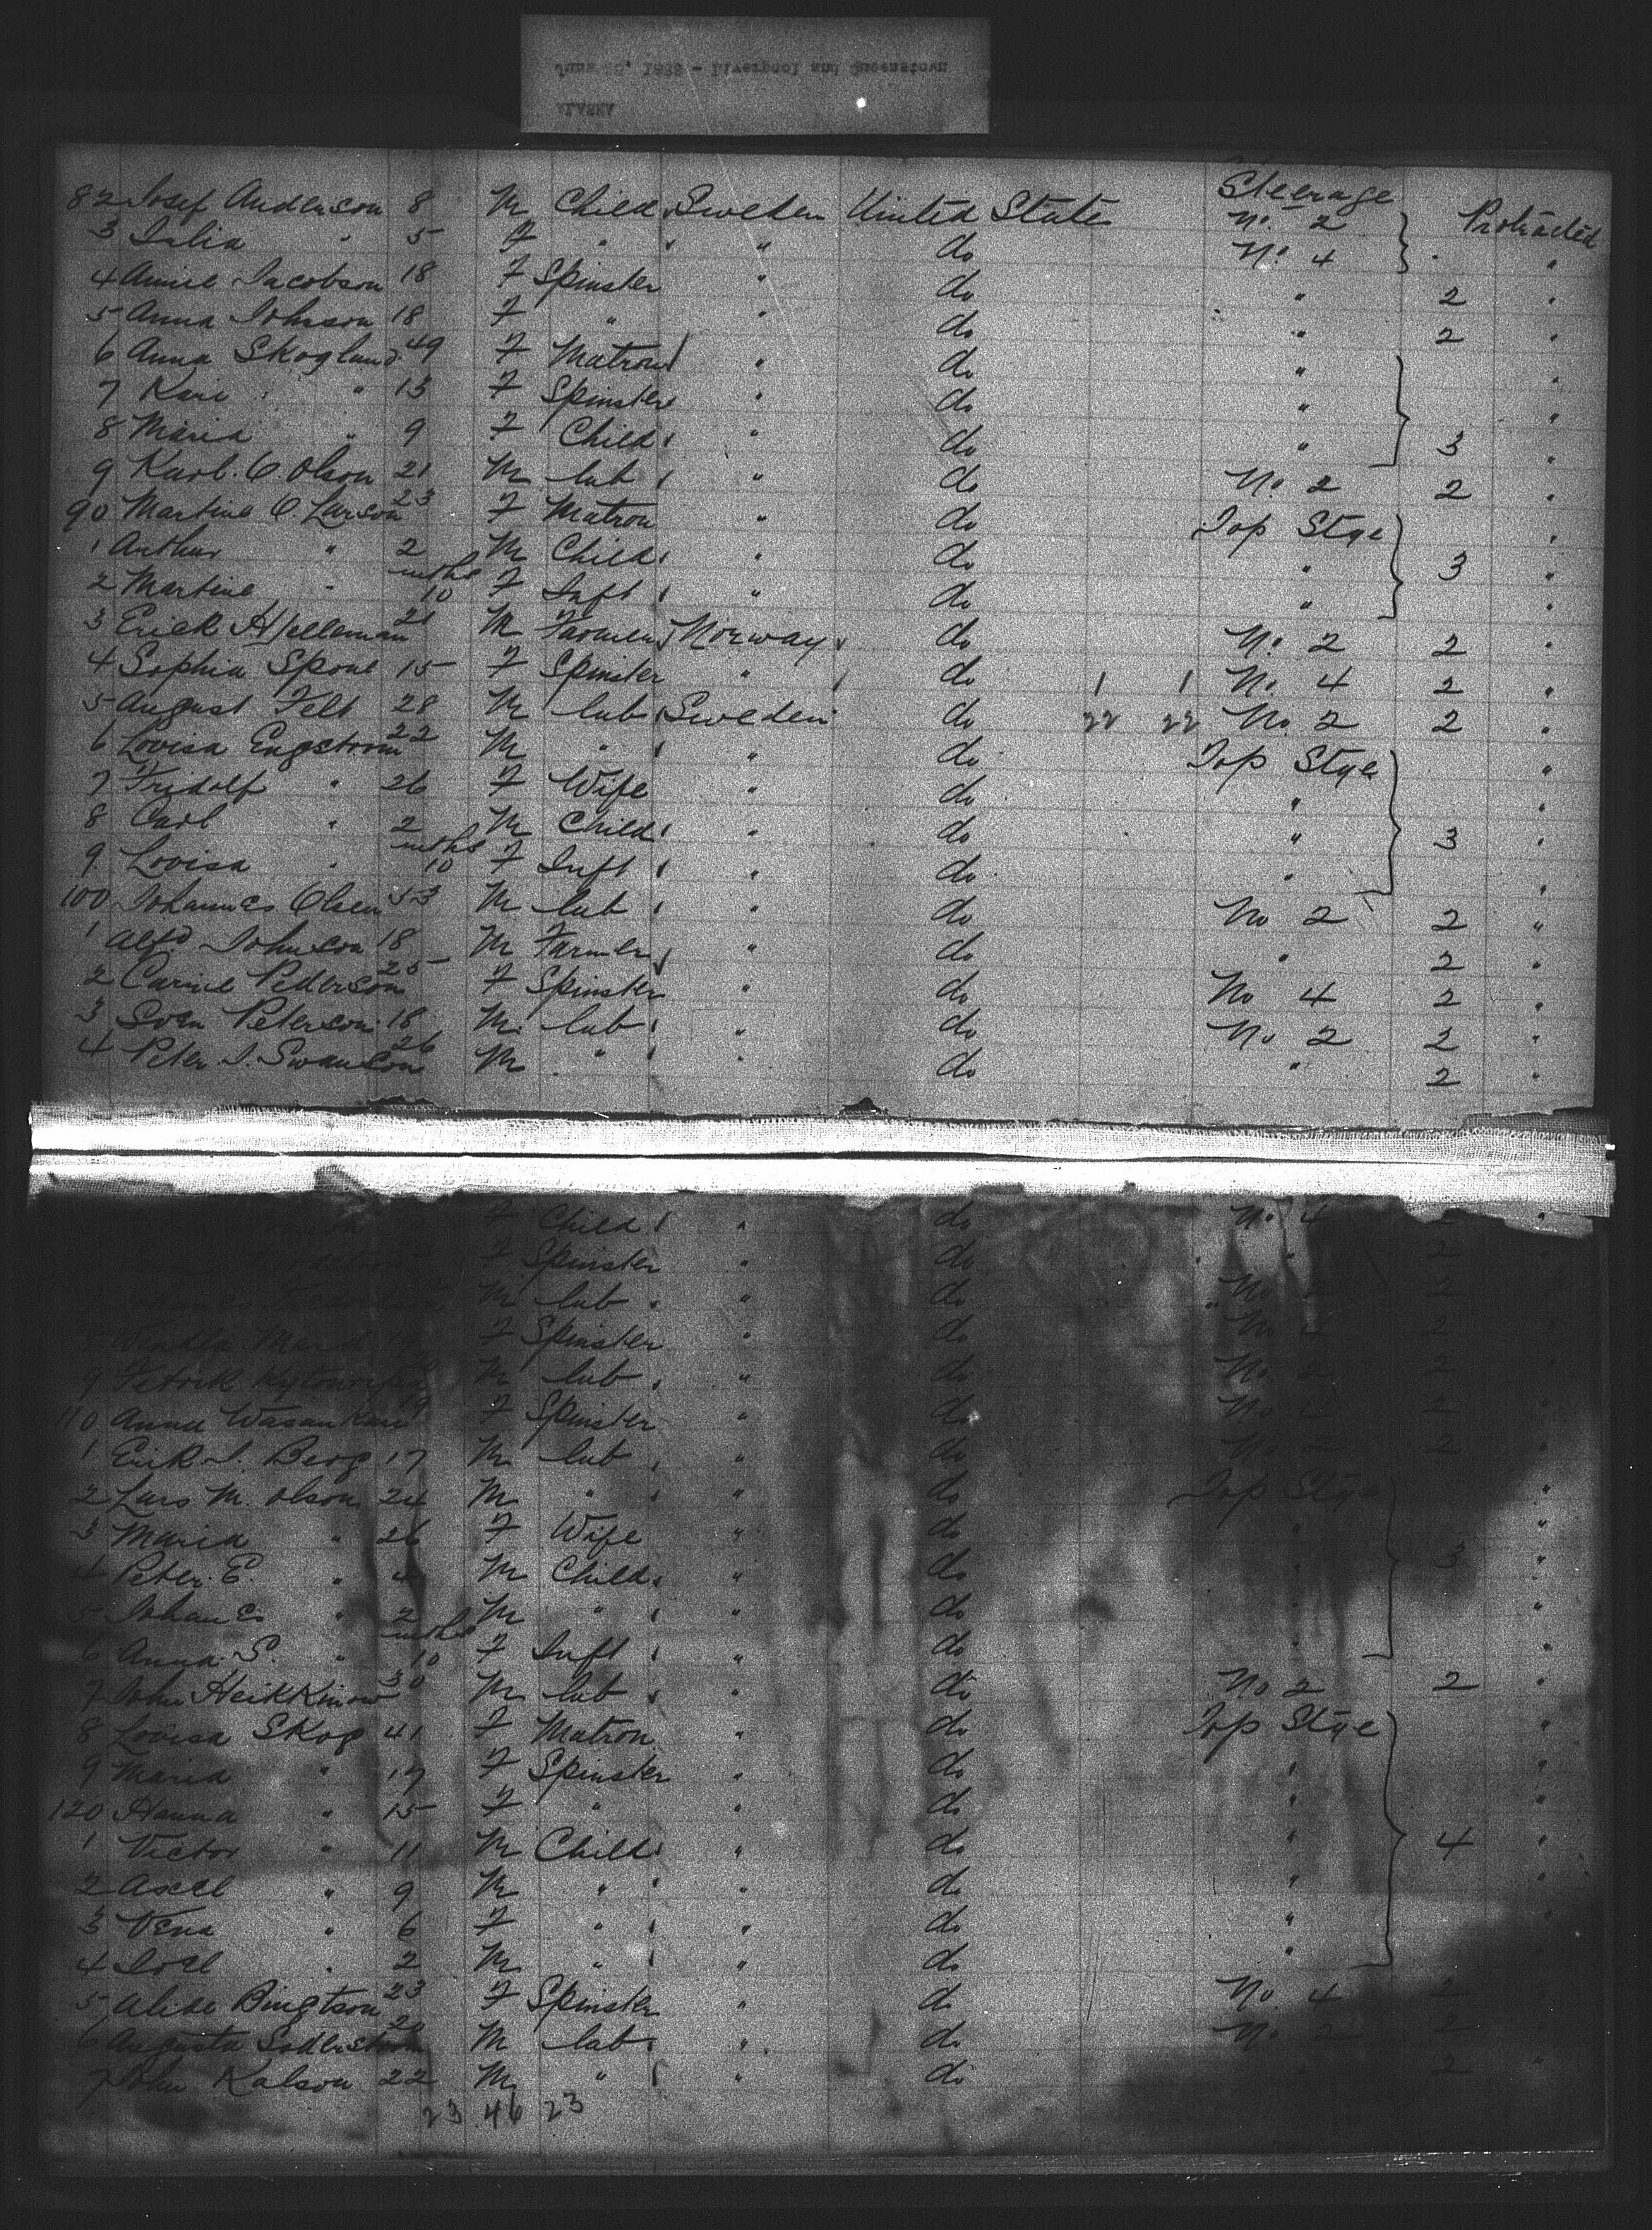 ALASKA
June , 1888 - Liverpool and Queenstown
Steerage
82 Josef Anderson 8 M Child Sweden United State No. 2 Protracted
3 Julia " 5 F " " do No. 4 "
4 Annie Jacobson 18 F Spinster " do " 2 "
5 Anna Johnson 18 F " " do " 2 "
6 Anna Skogland 49 F Matron " do " "
7 Kari " 13 F Spinster " do " "
8 Maria " 9 F Child " do " 3 "
9 Karl. O. Olson 21 M lab " do No. 2 2 "
90 Martine O. Larson 23 F Matron " do Top Stge "
1 Arthur " 2 M Child " do " 3 "
2 Martine " mths 10 F Inft " do " "
3 Erick Hjelleman 21 M Farmer Norway do No. 2 2 "
4 Sophia Spone 15 F Spinster " do 1 1 No. 4 2 "
5 August Felt 28 M lab Sweden do 22 22 No. 2 2 "
6 Lovisa Engstrom 22 M " " do Top Stge "
7 Fridolf " 26 F Wife " do " "
8 Carl " 2 M Child " do " 3 "
9 Lovisa " mths 10 F Inft " do " "
100 Johannes Olsen 53 M lab " do No 2 2 "
1 Alfd Johnson 18 M Farmer " do " 2 "
2 Carine Pederson 25 F Spinster " do No 4 2 "
3 Sven Peterson 18 M lab " do No 2 2 "
4 Peter J. Swanson 26 M " " do " 2 "
F Child " do No 4 2 "
F Spinster " do " 2 "
M lab " do No 2 "
Maria F Spinster " do No 2 "
9 M lab " do No 2 2 "
110 Anna 19 F Spinster " do No 2 "
1 Erik J. Berg 17 M lab " do No 2 "
2 Lars M. Olson 24 M " " do Top Stge "
3 Maria " 26 F Wife " do "
4 Peter. E. " 4 M Child " do 3 "
5 Johan E. " 2 M " " do "
6 Anna S. " mths 10 F Inft " do " "
7 John Heikkinow 30 M lab " do No 2 2 "
8 Lovisa Skog 41 F Matron " do Top Stge "
9 Maria " 17 F Spinster " do " "
120 Hanna " 15 F " " do " "
1 Victor " 11 M Child " do " 4 "
2 Axel " 9 M " " do " "
3 Vena " 6 F " " do " "
4 Joel " 2 M " " do " "
5 Alide Bingtson 23 F Spinster " do No. 4 2
6 Augusta Soderstrom 20 M lab " do No. 2 2
7 John Kalson 22 M " " do 2
23 46 23